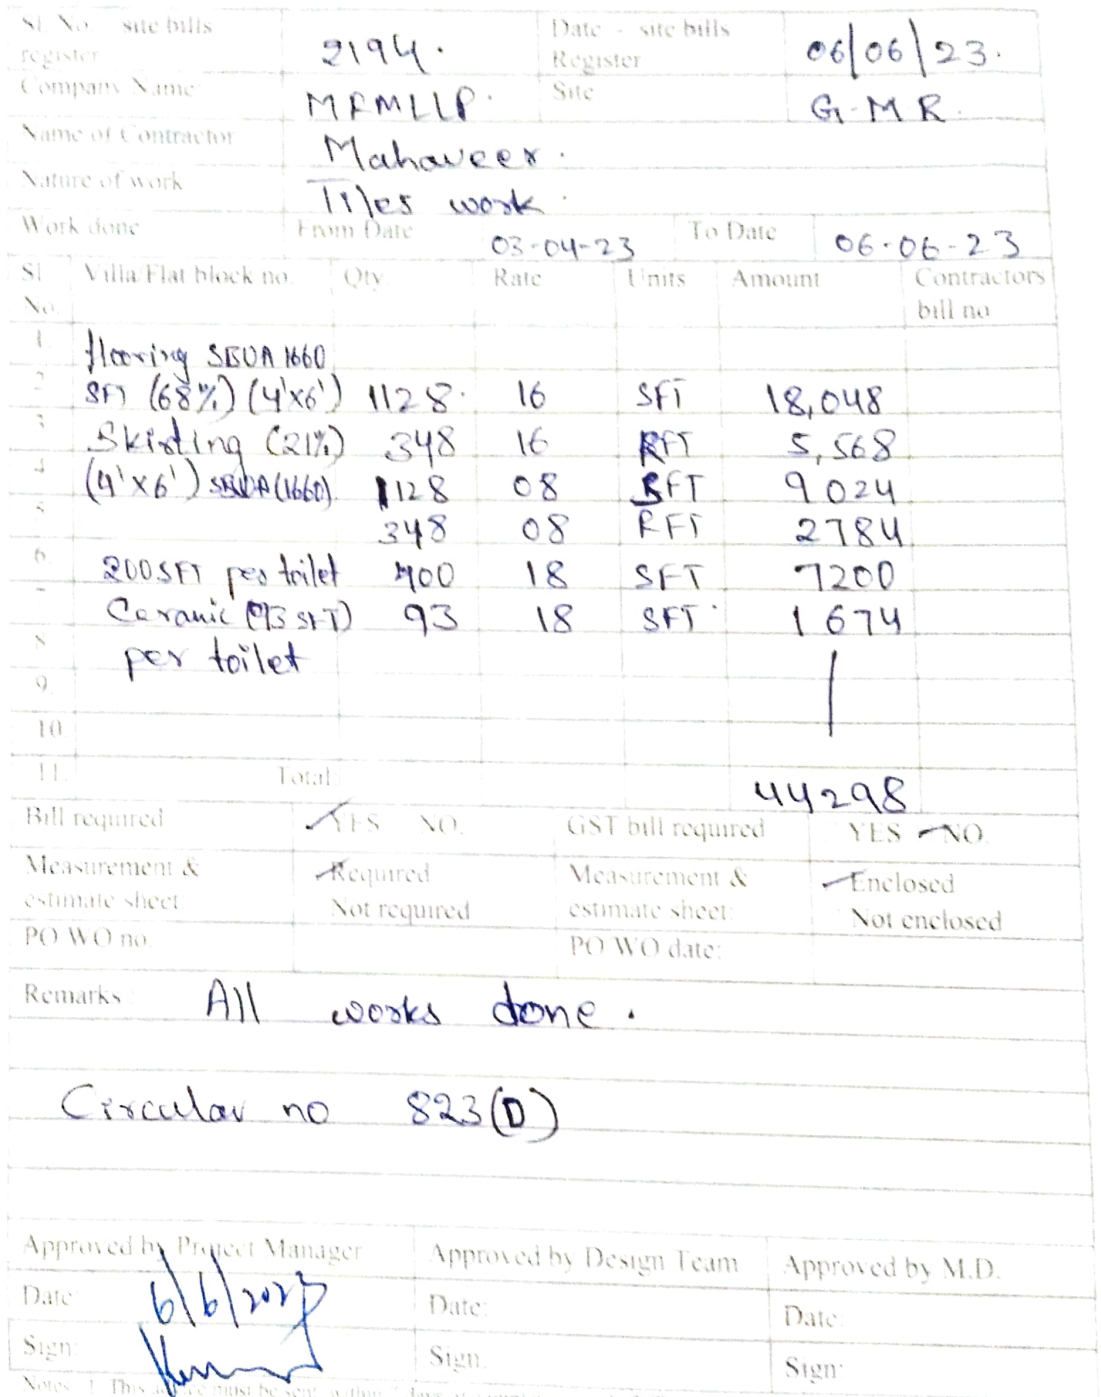 Sl. No. - site bills register 2194. Date - site bills Register 06/06/23.
Company Name MFMLLP. Site G-M R.
Name of Contractor Mahaveer.
Nature of work Tiles work.
Work done From Date 03-04-23 To Date 06-06-23
Sl. No. Villa/Flat block no. Qty. Rate Units Amount Contractors bill no
1 flooring SBUA 1660
2 SFT (68%) (4'x6') 1128. 16 SFT 18,048
3 Skirting (21%) 348 16 RFT 5,568
4 (4'x6') SBUA (1660). 1128 08 SFT 9024
5 348 08 RFT 2784
6 200 SFT per toilet 400 18 SFT 7200
7 Ceramic (93 SFT) 93 18 SFT 1674
8 per toilet
9.
10.
11. Total: 44298
Bill required YES NO. GST bill required YES NO.
Measurement & estimate sheet Required Not required Measurement & estimate sheet: Enclosed Not enclosed
PO WO no. PO WO date:
Remarks: All works done.
Circular no 823(D)
Approved by Project Manager Approved by Design Team Approved by M.D.
Date: 6/6/2023 Date: Date:
Sign: Sign: Sign:
Notes: 1. This must be sent within 7 days